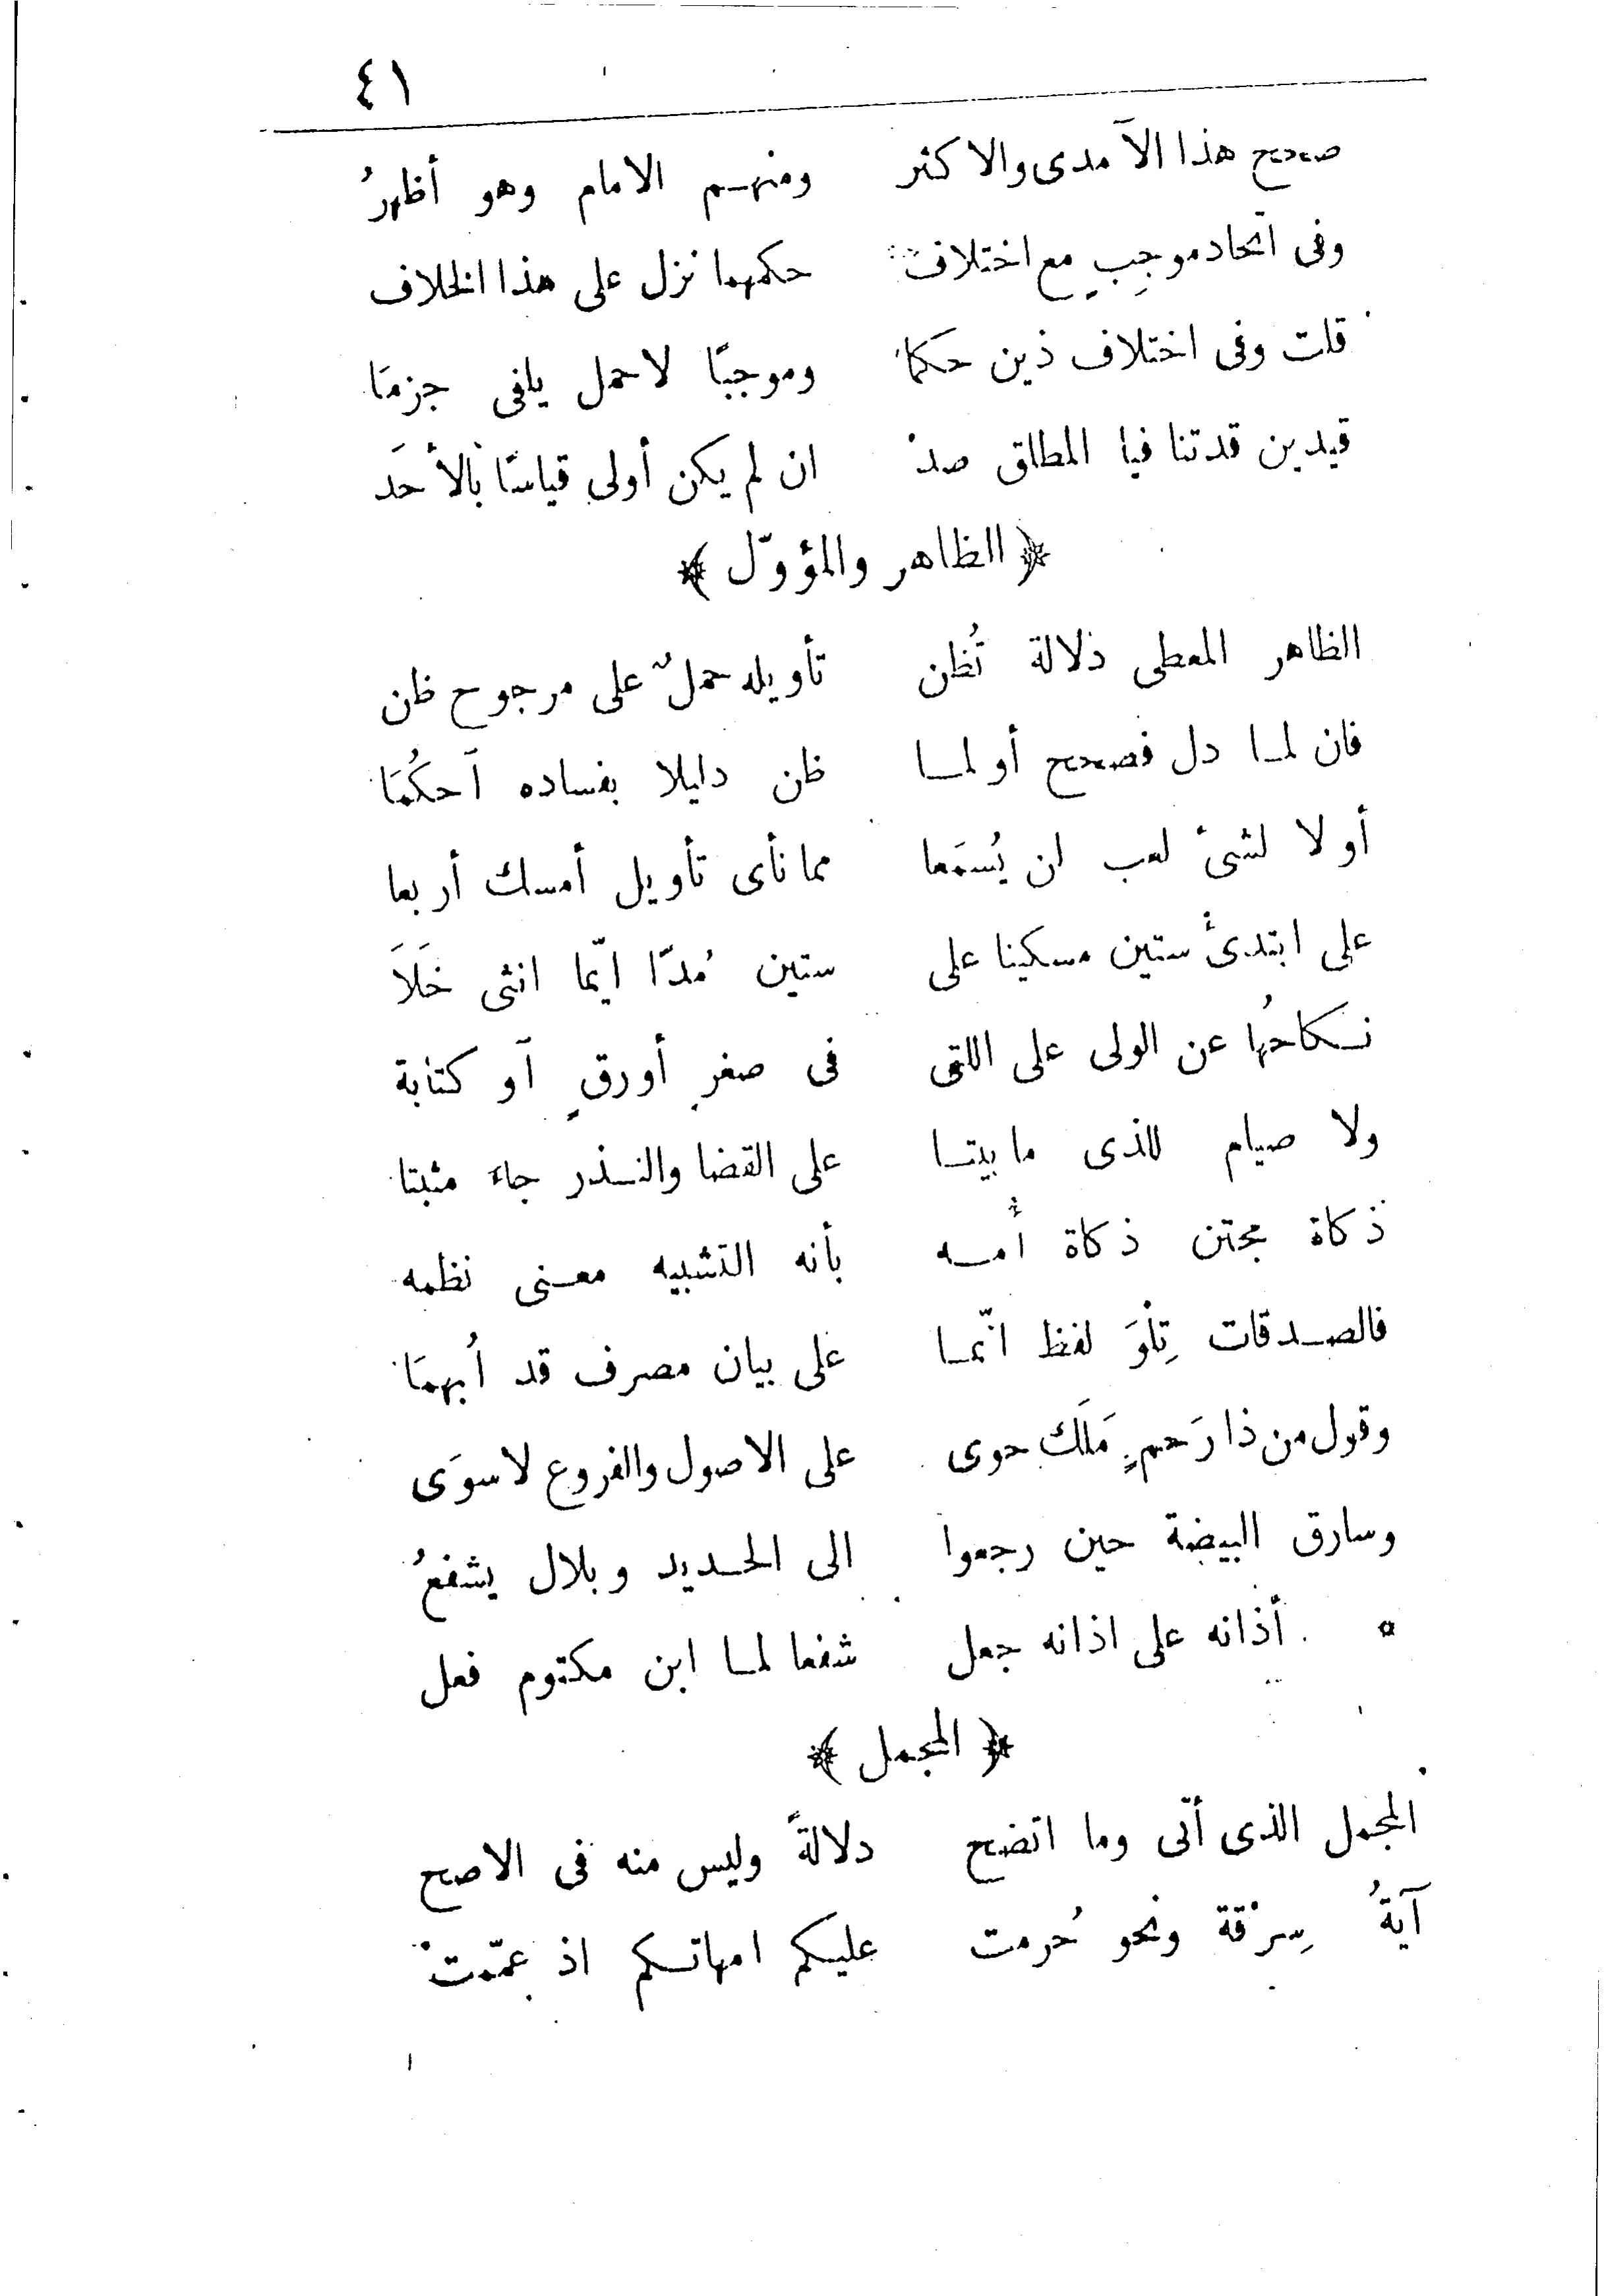 ٤١
صحح هذا الآمدى والاكثر ومنهم الامام وهو أظهرُ
وفى اتحاد موجِبٍ مع اختلاف حكمهما نزل على هذا الخلاف
قلت وفى اختلاف ذين حكما وموجبًا لا حمل يلفى جزمَا
قيدين قد تنافيا المطلق صدْ ان لم يكن أولى قياسًا بالأحَد
﴿ الظاهر والمؤوّل ﴾
الظاهر المعطى دلالة تُظن تأويله حملٌ على مرجوح ظن
فان لما دل فصحح أو لما ظن دليلا بفساده آحكُمَا
أو لا لشىء لعب لن يُسمَعا مما نأى تأويل أمسك أربعا
على ابتدئ ستين مسكينا على ستين مُدّا ايّما انثى خَلَاَ
نكاحُها عن الولى على اللتى فى صغرٍ أورقٍ آو كتابة
ولا صيام للذى ما بيتا على القضا والنذر جاء مثبتا
ذكاة مجتن ذكاة أُمه بأنه التشبيه معنى نظمه
فالصدقات تِلْوَ لفظ انّما على بيان مصرف قد اُبهمَا
وقول من ذا رَحمٍ مَلَك حوى على الاصول والفروع لا سوَى
وسارق البيضة حين رجعوا الى الحديد وبلال يشفعُ
أذانه على اذانه جعل شفعا لما ابن مكتوم فعل
﴿ المجمل ﴾
المجمل الذى أتى وما اتضح دلالةً وليس منه فى الاصح
آيةُ سِرْقة ونحو حُرمت عليكم امهاتكم اذ عمّمتْ